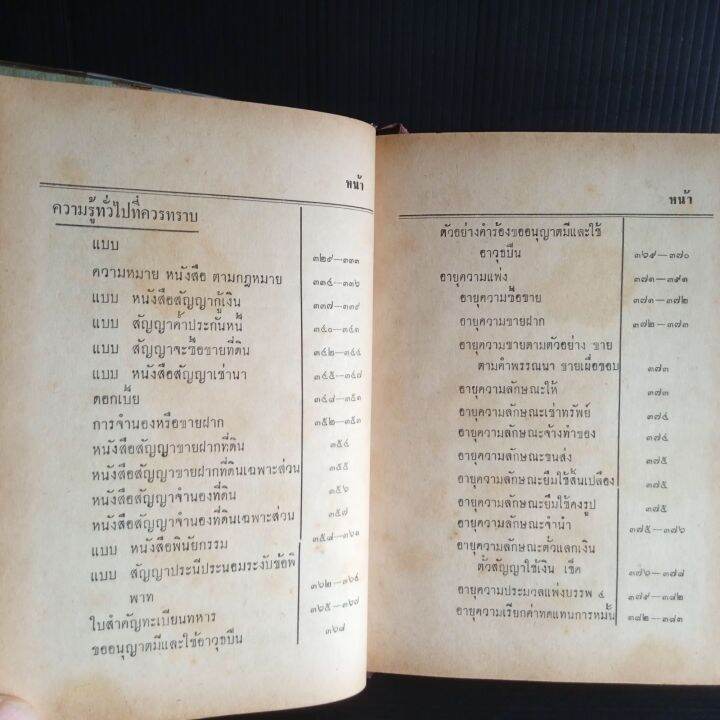 หน้า
ความรู้ทั่วไปที่ควรทราบ
แบบ ๓๒๙—๓๓๓
ความหมาย หนังสือ ตามกฎหมาย ๓๓๔—๓๓๖
แบบ หนังสือสัญญากู้เงิน ๓๓๗—๓๓๙
แบบ สัญญาค้ำประกันหนี้ ๓๔๐—๓๔๑
แบบ สัญญาจะซื้อขายที่ดิน ๓๔๒—๓๔๔
แบบ หนังสือสัญญาเช่านา ๓๔๕—๓๔๗
ดอกเบี้ย ๓๔๘—๓๕๑
การจำนองหรือขายฝาก ๓๕๒—๓๕๓
หนังสือสัญญาขายฝากที่ดิน ๓๕๔
หนังสือสัญญาขายฝากที่ดินเฉพาะส่วน ๓๕๕
หนังสือสัญญาจำนองที่ดิน ๓๕๖
หนังสือสัญญาจำนองที่ดินเฉพาะส่วน ๓๕๗
แบบ หนังสือพินัยกรรม ๓๕๘—๓๖๑
แบบ สัญญาประนีประนอมระงับข้อพิ
พาท ๓๖๒—๓๖๔
ใบสำคัญทะเบียนทหาร ๓๖๕—๓๖๗
ขออนุญาตมีและใช้อาวุธปืน ๓๖๘
หน้า
ตัวอย่างคำร้องขออนุญาตมีและใช้
อาวุธปืน ๓๖๙—๓๗๐
อายุความแพ่ง ๓๗๑—๓๙๑
อายุความซื้อขาย ๓๗๑—๓๗๒
อายุความขายฝาก ๓๗๒—๓๗๓
อายุความขายตามตัวอย่าง ขาย
ตามคำพรรณนา ขายเผื่อชอบ ๓๗๓
อายุความลักษณะให้ ๓๗๔
อายุความลักษณะเช่าทรัพย์ ๓๗๔
อายุความลักษณะจ้างทำของ ๓๗๔
อายุความลักษณะขนส่ง ๓๗๕
อายุความลักษณะยืมใช้สิ้นเปลือง ๓๗๕
อายุความลักษณะยืมใช้คงรูป ๓๗๕
อายุความลักษณะจำนำ ๓๗๕—๓๗๖
อายุความลักษณะตั๋วแลกเงิน
ตั๋วสัญญาใช้เงิน เช็ค ๓๗๖—๓๗๘
อายุความประมวลแพ่งบรรพ ๔ ๓๗๙—๓๘๒
อายุความเรียกค่าทดแทนการหมั้น ๓๘๒—๓๘๓